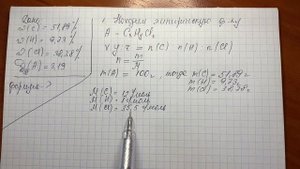 Дано:
ω(C) = 51,89%
ω(H) = 9,73%
ω(Cl) = 38,38%
D (A) = 3,19
формула - ?
1. Находим эмпирическую ф-лу
A - CxHyClz
x:y:z = n(C) : n(H) : n(Cl)
n = m/M
m(A) = 100г, тогда m(C) = 51,89г
m(H) = 9,73г
m(Cl) = 38,38г
M(C) = 12 г/моль
M(H) = 1 г/моль
M(Cl) = 35,5 г/моль